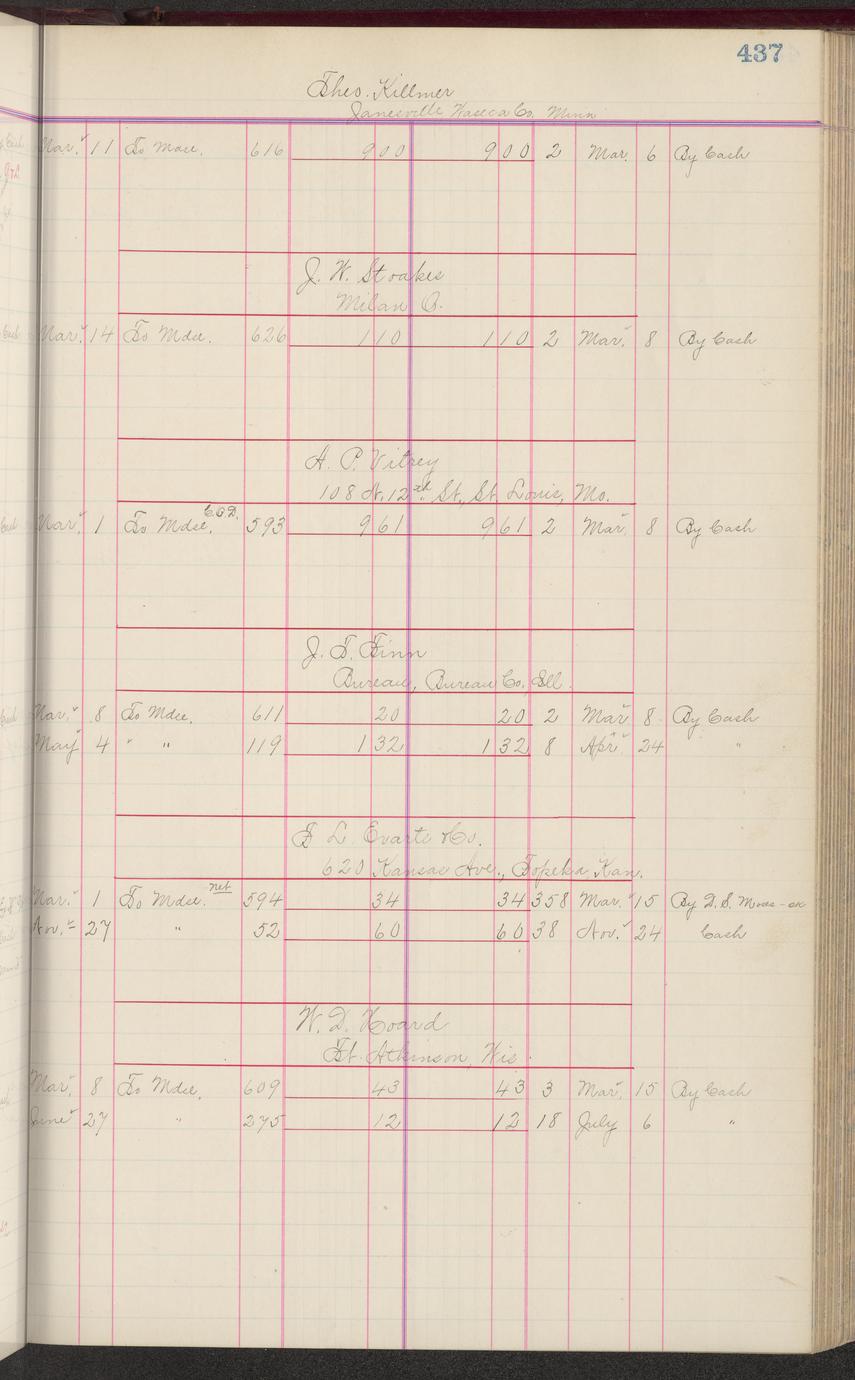 437
Theo. Killmer
Janesville Waseca Co. Minn
Mar. 11 To Mdse. 616 900 900 2 Mar. 6 By Cash
J. W. Stoakes
Milan O.
Mar. 14 To Mdse. 626 110 110 2 Mar. 8 By Cash
H. P. Vitrey
108 N. 12th St., St. Louis, Mo.
Mar. 1 To Mdse. C.O.D. 593 961 961 2 Mar. 8 By Cash
J. T. Finn
Bureau, Bureau Co. Ill.
Mar. 8 To Mdse. 611 20 20 2 Mar 8 By Cash
May 4 " " 119 132 132 8 Apr 24 "
620 Kansas Ave., Topeka Kan.
Mar. 1 To Mdse. net 594 34 34 358 Mar. 15 By D. S.
Nov. 27 " 52 60 60 38 Nov. 24 Cash
W. D. Hoard
Ft. Atkinson, Wis.
Mar. 8 To Mdse. 609 43 43 3 Mar. 15 By Cash
June 27 " 275 12 12 18 July 6 "